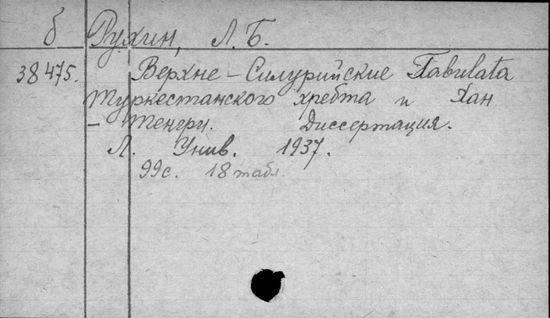 б Рухин, Л.Б.
38475. Верхне-Силурийские Tabulata
Туркестанского хребта и Хан
-Тенгри. Диссертация.
Л. Унив. 1937.
99с. 18 табл.